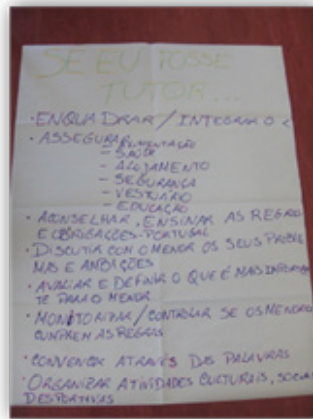 SE EU FOSSE
TUTOR...
• ENQUADRAR / INTEGRAR O
• ASSEGURAR
– ALIMENTAÇÃO
– SAÚDE
– ALOJAMENTO
– SEGURANÇA
– VESTUÁRIO
– EDUCAÇÃO
• ACONSELHAR, ENSINAR AS REGRAS
E OBRIGAÇÕES - PORTUGAL
• DISCUTIR COM O MENOR OS SEUS PROBLE
MAS E AMBIÇÕES
• AVALIAR E DEFINIR O QUE É MAIS IMPORTAN
TE PARA O MENOR
• MONITORIZAR / CONTROLAR SE OS MENORES
CUMPREM AS REGRAS
• CONVENCER ATRAVÉS DAS PALAVRAS
• ORGANIZAR ATIVIDADES CULTURAIS, SOCIAIS
DESPORTIVAS